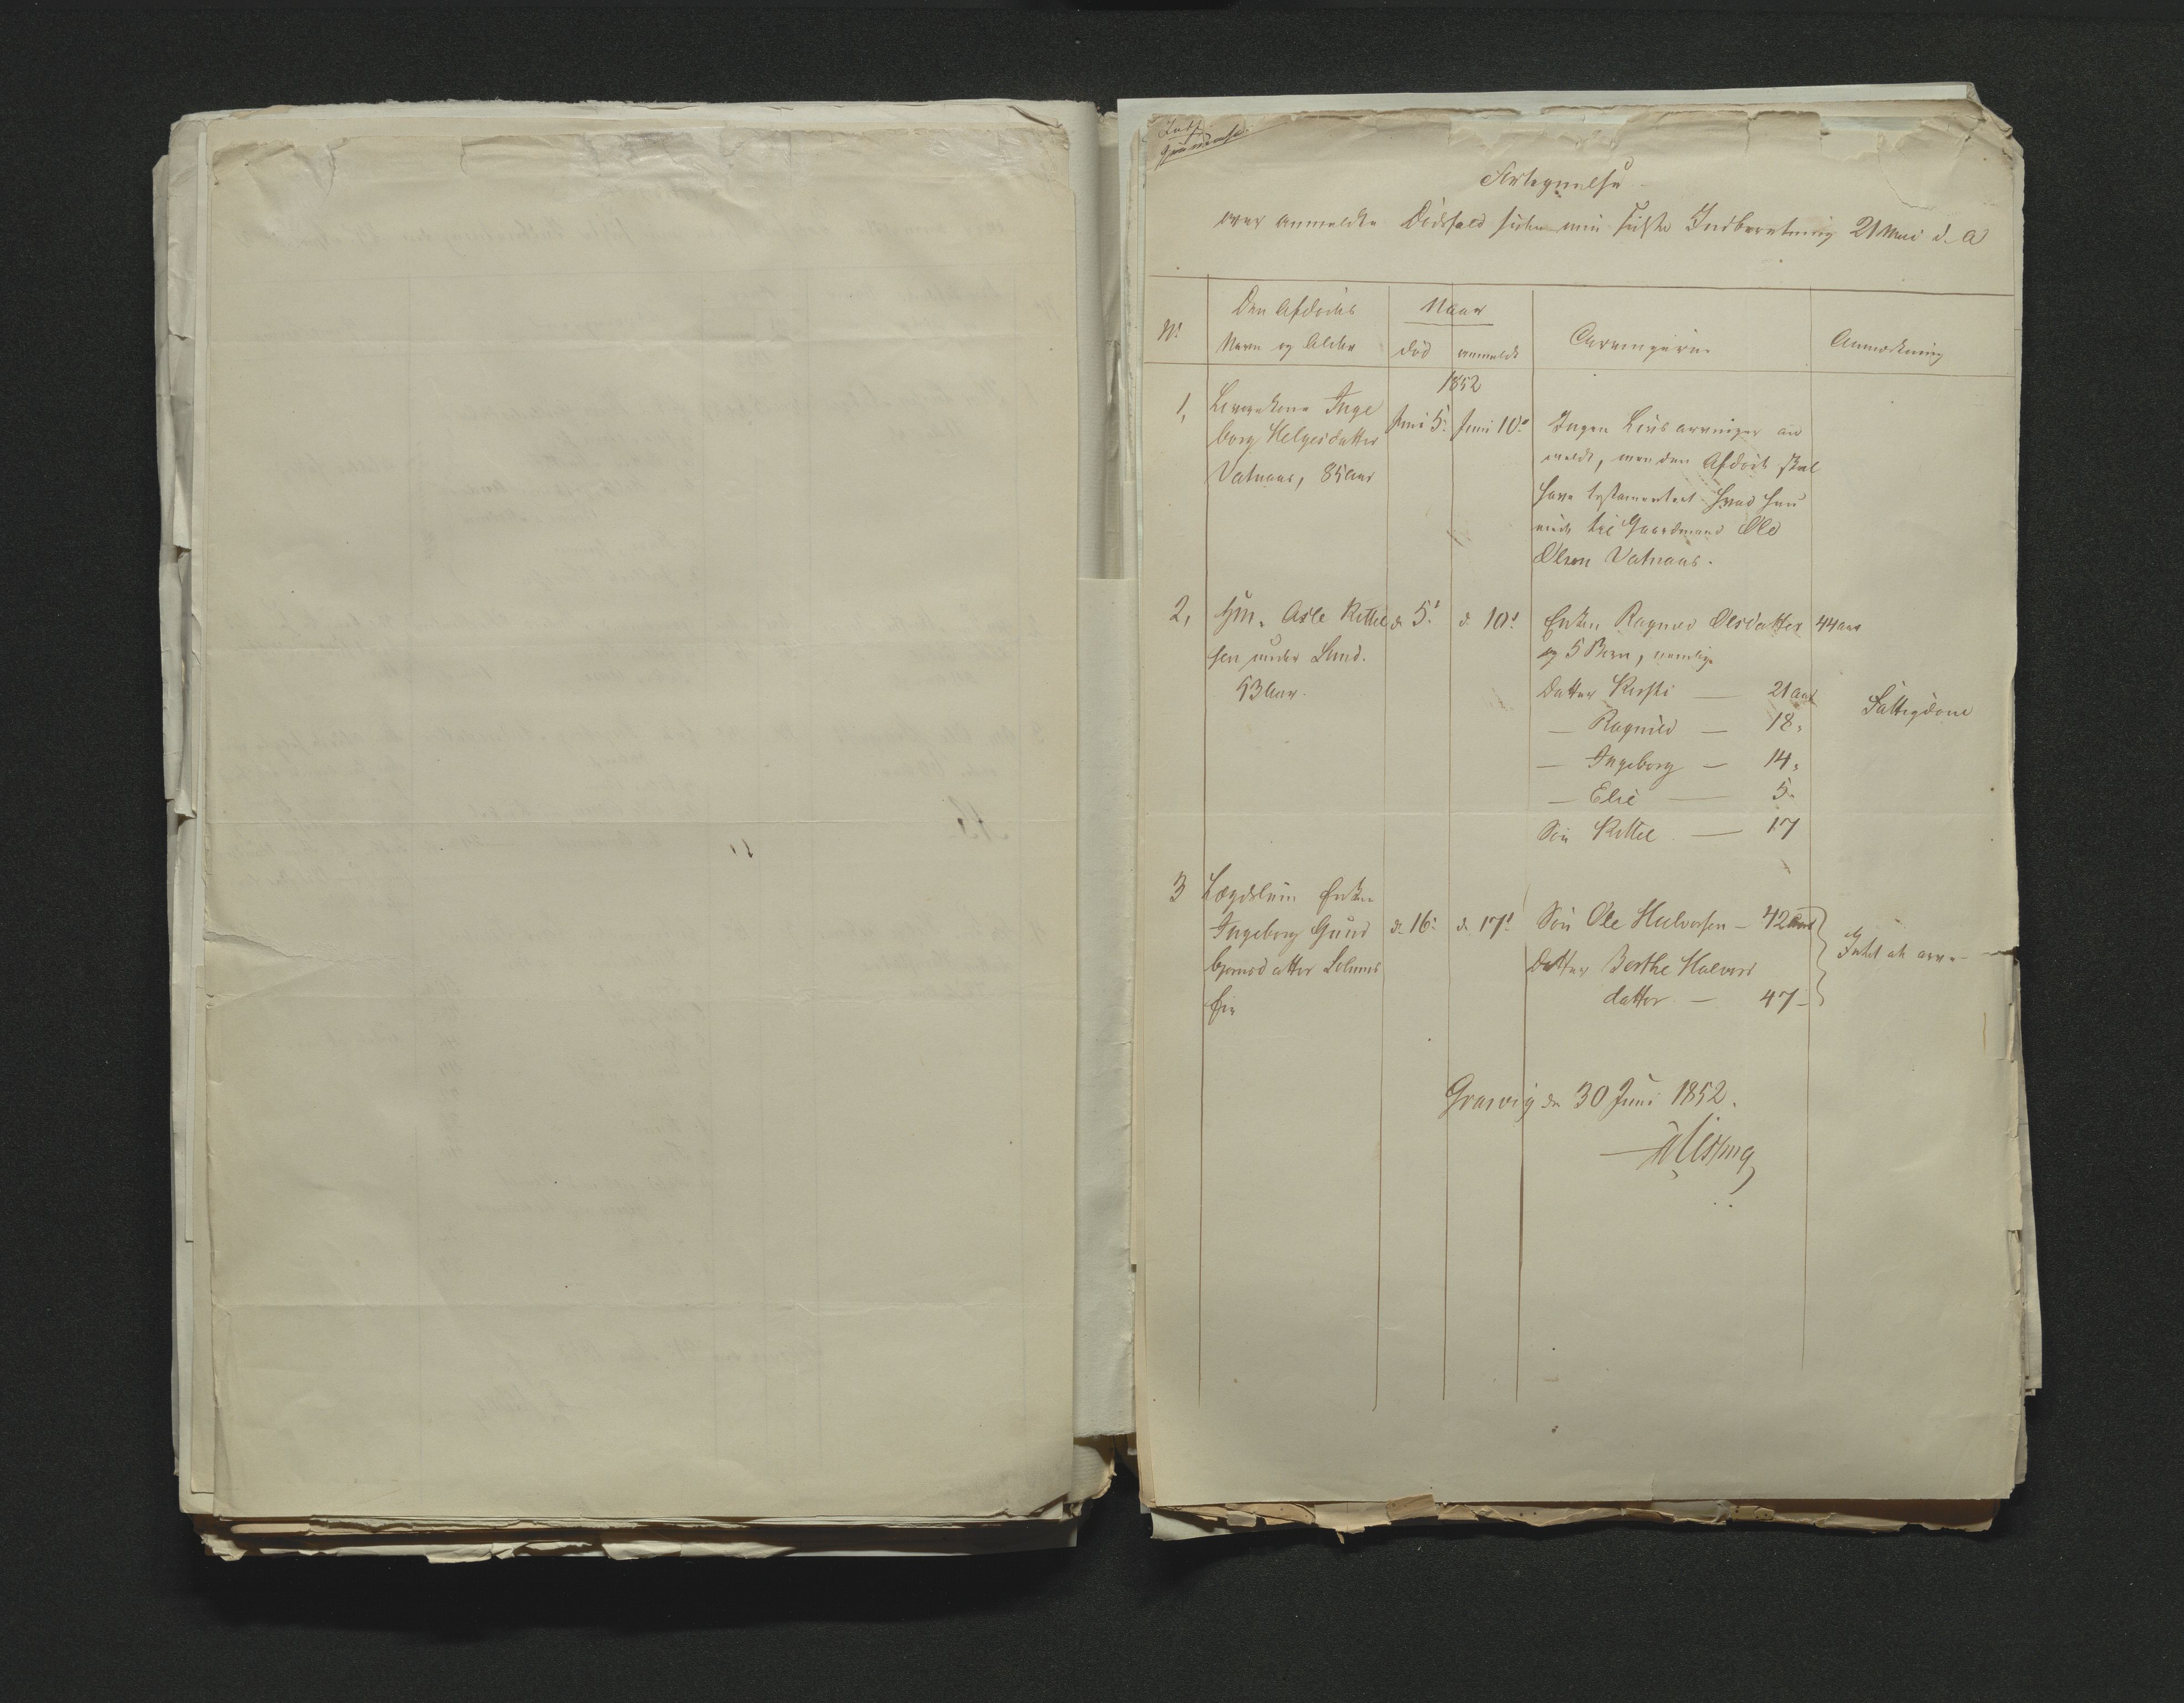 Fortegnelse
over anmeldte Dödsfald siden min sidste Indberetning 21 Mai d. A
No
Den Afdödes
Navn og Alder
Naar
död
anmeldt
Arvingerne
Anmærkning
1852
1,
Inge
borg Helgesdatter
Vatnaas, 85 Aar
Juni 5.
Juni 10.
Ingen Livsarvinger an
meldt, men den Afdöde skal
have testamenteret hvad hun
eiede til Gaardmand Ole
Olsen Vatnaas.
2,
Hm. Asle Kittel
sen under Lund.
53 Aar.
d. 5.
d. 10.
Enken Ragnild Olsdatter 44 aar
og 5 Börn, nemlig
Datter Kirsti — 21 aar
— Ragnild — 18 "
— Ingeborg — 14 "
— Elie — 5 "
Sön Kittel — 17
Fattigdom
3
Lægdslem Enken
Ingeborg Gund
bjørnsdatter
d. 16.
d. 17.
Sön Ole Halvorsen — 42 aar
Datter Berthe Halvors
datter — 47 —
Intet at arve
d. 30 Juni 1852.